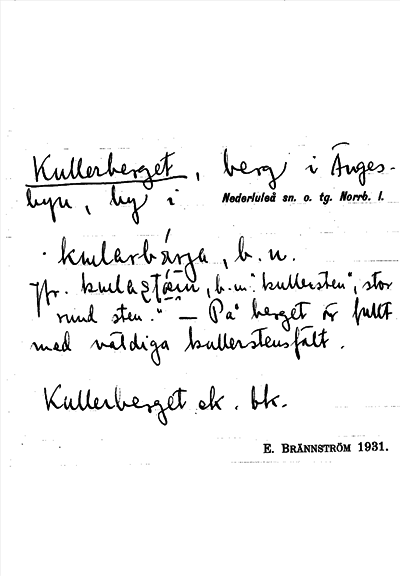 Kullerberget, berg i Änges-
byn, by i Nederluleå sn. o. tg. Norrb. l.
kularbárja, b. n.
Jfr. kulastäin, b. m. "kullersten", stor
rund sten." — På berget är fullt
med väldiga kullerstensfält.
Kullerberget ek. bk.
E. BRÄNNSTRÖM 1931.